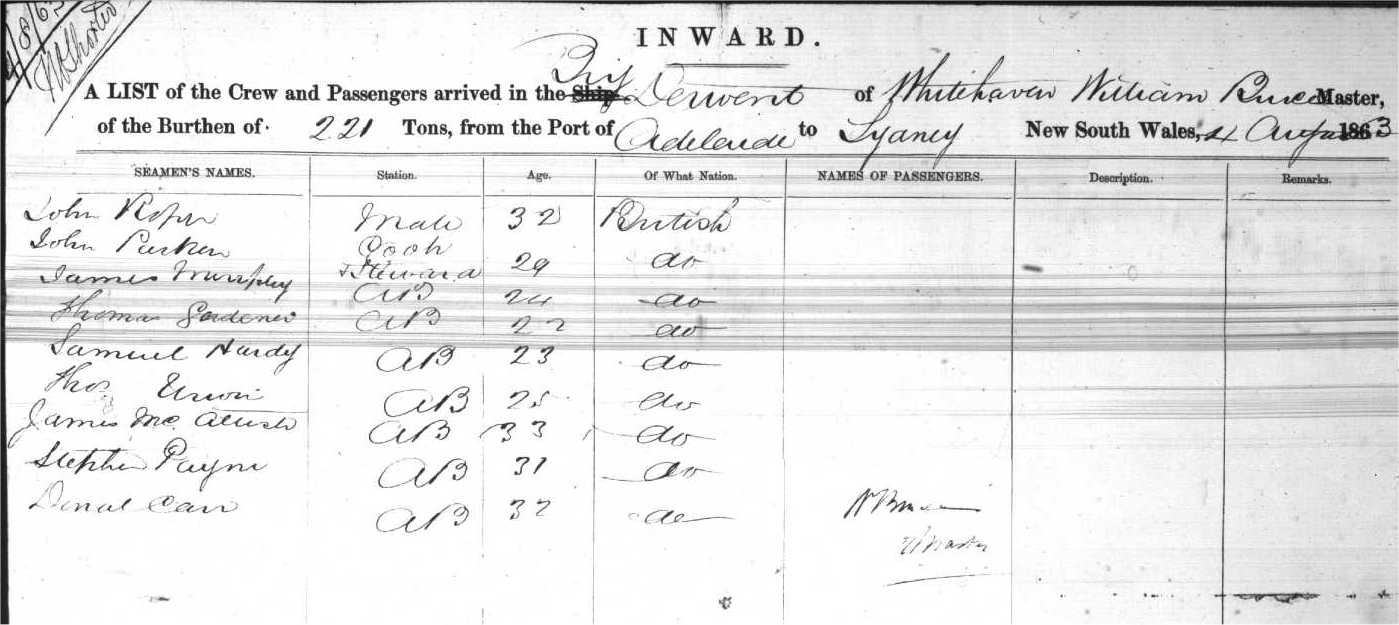 4/8/63
INWARD.
A LIST of the Crew and Passengers arrived in the Ship Brig Derwent of Whitehaven William Master,
of the Burthen of 221 Tons, from the Port of Adelaide to Sydney New South Wales, 4 August 1863
SEAMEN'S NAMES. Station. Age. Of What Nation. NAMES OF PASSENGERS. Description. Remarks.
John Roper Mate 32 British
John Parker Cook & Steward 29 do
James Murphy AB 24 do
Thomas Gardener AB 22 do
Samuel Hardy AB 23 do
Thos AB 25 do
James Mc AB 33 do
Stephen Payne AB 31 do
Carr AB 32 do
Master